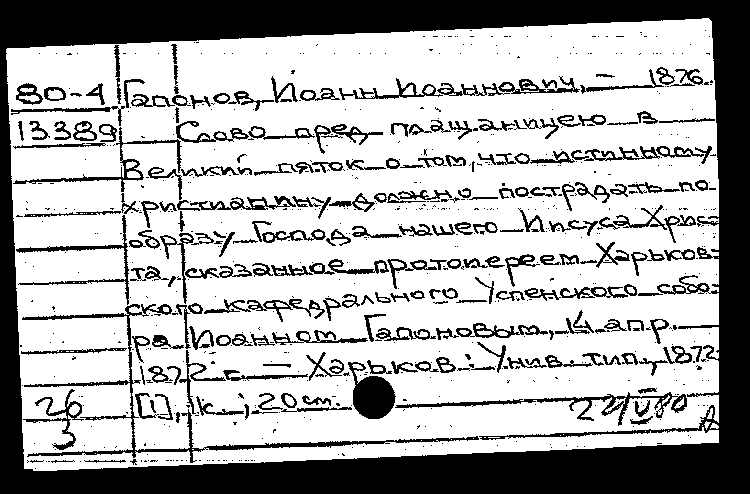 80-4 Гапонов, Иоанн Иоаннович, – 1876.
13389 Слово пред плащаницею в
Великий пяток о том, что истинному
христианину должно пострадать по
образу Господа нашего Иисуса Хрис-
та, сказанное протоиереем Харьков-
ского кафедрального Успенского собо-
ра Иоанном Гапоновым, 14 апр.
1872 г. – Харьков: Унив. тип., 1872.
26 [1], 1к.; 20 см. 22/V 80
3